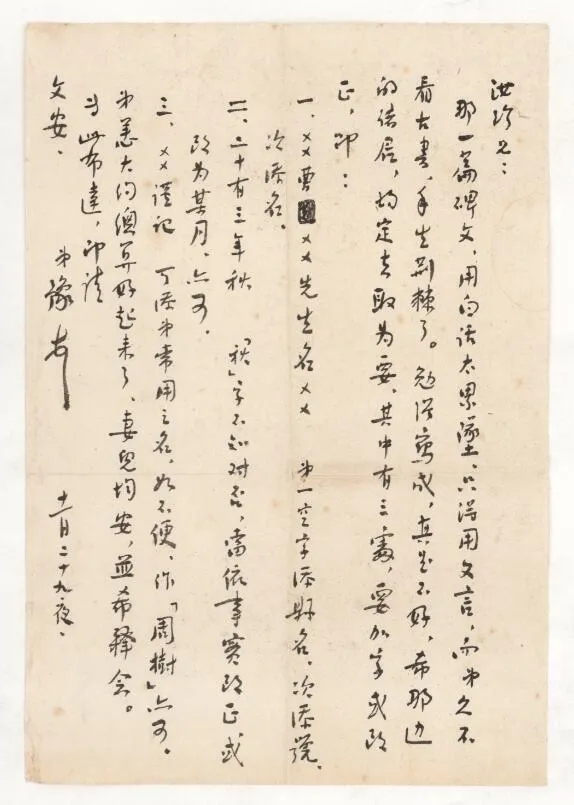 汝珍兄：
那一篇碑文，用白话太累墜，只得用文言，而弟久不
看古書，手生荆棘了。勉强寫成，真是不好，希那边
的，酌定去取为要，其中有三處，要加字或改
正，即：
一、××曹××先生名×× 第一空字添縣名，次添號，
次添名。
二、二十有三年秋 「秋」字不知对否，當依事實改正或
改为某月，亦可。
三、××謹記 可添弟常用之名，如不便，作「周樹」亦可。
弟恙大约總算好起来了，妻兒均安，並希釋念。
专此布達，即请
文安。
弟豫上
十一月二十九夜。